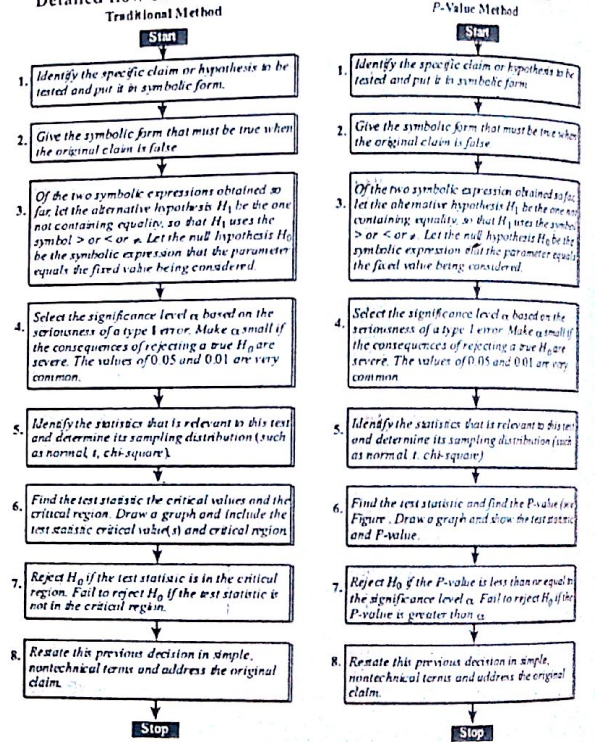 Detailed flow
Traditional Method
Start
1. Identify the specific claim or hypothesis to be
tested and put it in symbolic form.
2. Give the symbolic form that must be true when
the original claim is false
3. Of the two symbolic expressions obtained so
far, let the alternative hypothesis H₁ be the one
not containing equality, so that H₁ uses the
symbol > or < or ≠. Let the null hypothesis H₀
be the symbolic expression that the parameter
equals the fixed value being considered.
4. Select the significance level α based on the
seriousness of a type 1 error. Make α small if
the consequences of rejecting a true H₀ are
severe. The values of 0.05 and 0.01 are very
common.
5. Identify the statistics that is relevant to this test
and determine its sampling distribution (such
as normal, t, chi-square).
6. Find the test statistic the critical values and the
critical region. Draw a graph and include the
test statistic critical value(s) and critical region
7. Reject H₀ if the test statistic is in the critical
region. Fail to reject H₀ if the test statistic is
not in the critical region.
8. Restate this previous decision in simple,
nontechnical terms and address the original
claim.
Stop
P-Value Method
Start
1. Identify the specific claim or hypothesis to be
tested and put it in symbolic form
2. Give the symbolic form that must be true when
the original claim is false
3. Of the two symbolic expression obtained so far,
let the alternative hypothesis H₁ be the one not
containing equality, so that H₁ uses the symbol
> or < or ≠. Let the null hypothesis H₀ be the
symbolic expression that the parameter equals
the fixed value being considered.
4. Select the significance level α based on the
seriousness of a type 1 error Make α small if
the consequences of rejecting a true H₀ are
severe. The values of 0.05 and 0.01 are very
common
5. Identify the statistics that is relevant to this test
and determine its sampling distribution (such
as normal t. chi-square)
6. Find the test statistic and find the P-value (see
Figure . Draw a graph and show the test statistic
and P-value.
7. Reject H₀ if the P-value is less than or equal to
the significance level α Fail to reject H₀ if the
P-value is greater than α
8. Restate this previous decision in simple,
nontechnical terms and address the original
claim.
Stop